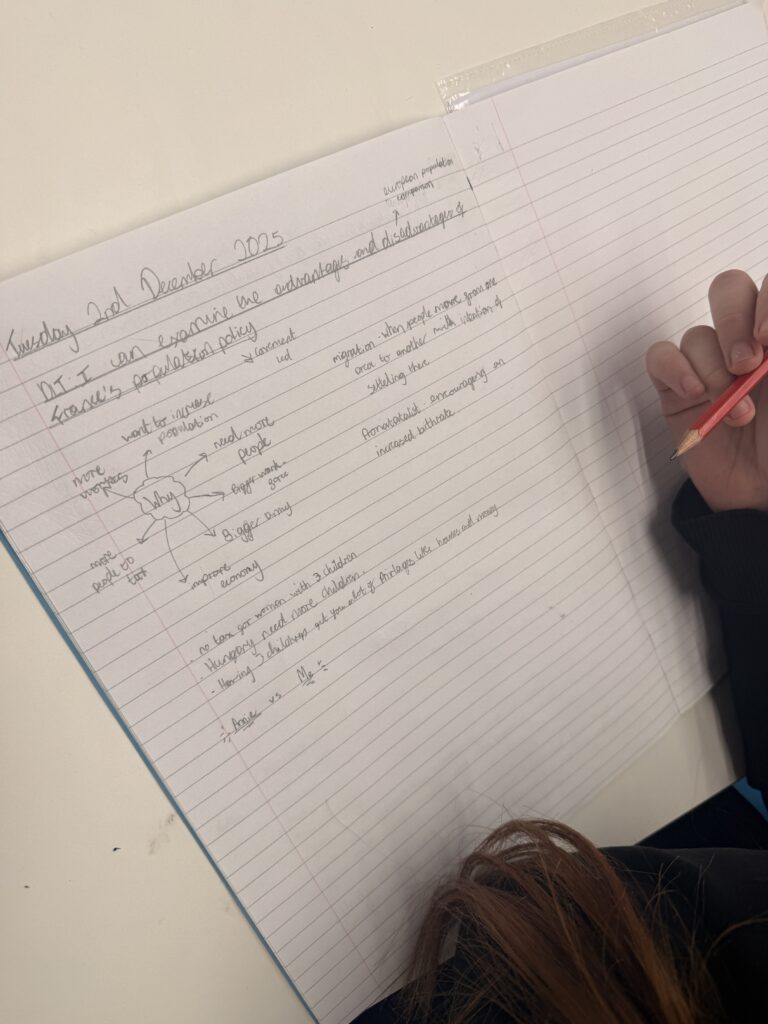 european population
comparison
Tuesday 2nd December 2025
DI: I can examine the advantages and disadvantages of
France's population policy
migration - when people move from one
area to another with intention of
settleling there
Pronatalist - encouraging an
increased bithrate
Why
want to increase
population
need more
people
bigger work
force
Bigger army
improve
economy
more
people to
more
· no tax for women with 3 children
· Hungary need more children.
· Having 3 childrens get you a lot of like houses and money
Annie vs Me